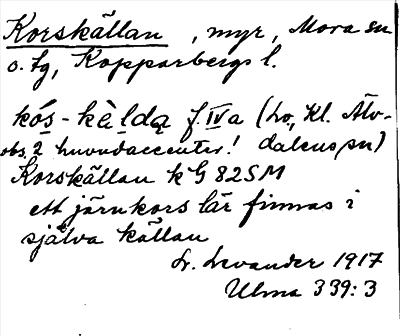 Korskällan, myr, Mora sn
o. tg, Kopparbergs l.
kós-kὲlda f. IV a (Lo, Kl. Älv-
obs. 2 huvudaccenter! dalens sn)
Korskällan k G 82 SM
ett järnkors lär finnas i
själva källan
L. Levander 1917
Ulma 339:3